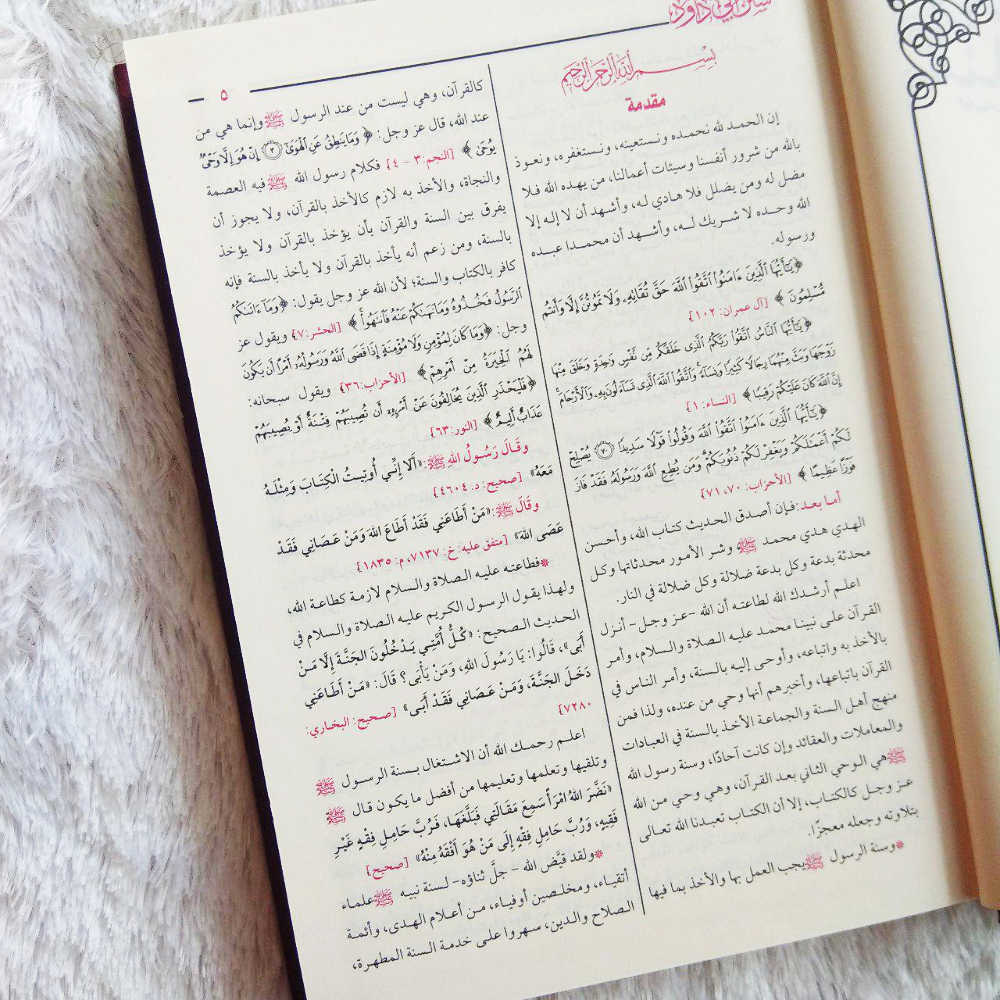 سنن أبي داود
٥
بسم الله الرحمن الرحيم
مقدمة
إن الحمد لله نحمده ونستعينه، ونستغفره، ونعوذ
بالله من شرور أنفسنا وسيئات أعمالنا، من يهده الله فلا
مضل له ومن يضلل فلا هادي له، وأشهد أن لا إله إلا
الله وحده لا شريك له، وأشهد أن محمدا عبده
ورسوله.
﴿يَٰٓأَيُّهَا ٱلَّذِينَ ءَامَنُوا۟ ٱتَّقُوا۟ ٱللَّهَ حَقَّ تُقَاتِهِۦ وَلَا تَمُوتُنَّ إِلَّا وَأَنتُم
مُّسْلِمُونَ﴾ [آل عمران: ١٠٢]
﴿يَٰٓأَيُّهَا ٱلنَّاسُ ٱتَّقُوا۟ رَبَّكُمُ ٱلَّذِى خَلَقَكُم مِّن نَّفْسٍ وَٰحِدَةٍ وَخَلَقَ مِنْهَا
زَوْجَهَا وَبَثَّ مِنْهُمَا رِجَالًا كَثِيرًا وَنِسَآءً وَٱتَّقُوا۟ ٱللَّهَ ٱلَّذِى تَسَآءَلُونَ بِهِۦ وَٱلْأَرْحَامَ
إِنَّ ٱللَّهَ كَانَ عَلَيْكُمْ رَقِيبًا﴾ [النساء: ١]
﴿يَٰٓأَيُّهَا ٱلَّذِينَ ءَامَنُوا۟ ٱتَّقُوا۟ ٱللَّهَ وَقُولُوا۟ قَوْلًا سَدِيدًا ۝٧٠ يُصْلِحْ
لَكُمْ أَعْمَٰلَكُمْ وَيَغْفِرْ لَكُمْ ذُنُوبَكُمْ وَمَن يُطِعِ ٱللَّهَ وَرَسُولَهُۥ فَقَدْ فَازَ
فَوْزًا عَظِيمًا﴾ [الأحزاب: ٧٠، ٧١]
أما بعد: فإن أصدق الحديث كتاب الله، وأحسن
الهدي هدي محمد ﷺ وشر الأمور محدثاتها وكل
محدثة بدعة وكل بدعة ضلالة وكل ضلالة في النار.
اعلم أرشدك الله لطاعته أن الله -عز وجل- أنزل
القرآن على نبينا محمد عليه الصلاة والسلام، وأمر
بالأخذ به واتباعه، وأوحى إليه بالسنة، وأمر الناس في
القرآن باتباعها، وأخبرهم أنها وحي من عنده، ولذا فمن
منهج أهل السنة والجماعة الأخذ بالسنة في العبادات
والمعاملات والعقائد وإن كانت آحادًا، وسنة رسول الله
ﷺ هي الوحي الثاني بعد القرآن، وهي وحي من الله
عز وجل كالكتاب، إلا أن الكتاب تعبدنا الله تعالى
بتلاوته وجعله معجزًا.
*وسنة الرسول ﷺ يجب العمل بها والأخذ بما فيها
كالقرآن، وهي ليست من عند الرسول ﷺ وإنما هي من
عند الله، قال عز وجل: ﴿وَمَا يَنطِقُ عَنِ ٱلْهَوَىٰٓ ۝٣ إِنْ هُوَ إِلَّا وَحْىٌ
يُوحَىٰ﴾ [النجم: ٣ - ٤] فكلام رسول الله ﷺ فيه العصمة
والنجاة، والأخذ به لازم كالأخذ بالقرآن، ولا يجوز أن
يفرق بين السنة والقرآن بأن يؤخذ بالقرآن ولا يؤخذ
بالسنة، ومن زعم أنه يأخذ بالقرآن ولا يأخذ بالسنة فإنه
كافر بالكتاب والسنة؛ لأن الله عز وجل يقول: ﴿وَمَآ ءَاتَىٰكُمُ
ٱلرَّسُولُ فَخُذُوهُ وَمَا نَهَىٰكُمْ عَنْهُ فَٱنتَهُوا۟﴾ [الحشر: ٧] ويقول عز
وجل: ﴿وَمَا كَانَ لِمُؤْمِنٍ وَلَا مُؤْمِنَةٍ إِذَا قَضَى ٱللَّهُ وَرَسُولُهُۥٓ أَمْرًا أَن يَكُونَ
لَهُمُ ٱلْخِيَرَةُ مِنْ أَمْرِهِمْ﴾ [الأحزاب: ٣٦] ويقول سبحانه:
﴿فَلْيَحْذَرِ ٱلَّذِينَ يُخَالِفُونَ عَنْ أَمْرِهِۦٓ أَن تُصِيبَهُمْ فِتْنَةٌ أَوْ يُصِيبَهُمْ
عَذَابٌ أَلِيمٌ﴾ [النور: ٦٣]
وقَالَ رَسُولُ اللهِ ﷺ: «أَلَا إِنِّي أُوتِيتُ الْكِتَابَ وَمِثْلَهُ
مَعَهُ» [صحيح: د. ٤٦٠٤]
وقَالَ ﷺ: «مَنْ أَطَاعَنِي فَقَدْ أَطَاعَ اللهَ وَمَنْ عَصَانِي فَقَدْ
عَصَى اللهَ» [متفق عليه: خ: ٧١٣٧، م: ١٨٣٥]
*فطاعته عليه الصلاة والسلام لازمة كطاعة الله،
ولهذا يقول الرسول الكريم عليه الصلاة والسلام في
الحديث الصحيح: «كُلُّ أُمَّتِي يَدْخُلُونَ الجَنَّةَ إِلَّا مَنْ
أَبَى»، قَالُوا: يَا رَسُولَ اللهِ، وَمَنْ يَأْبَى؟ قَالَ: «مَنْ أَطَاعَنِي
دَخَلَ الجَنَّةَ، وَمَنْ عَصَانِي فَقَدْ أَبَى» [صحيح: البخاري:
٧٢٨٠]
اعلم رحمك الله أن الاشتغال بسنة الرسول ﷺ
وتلقيها وتعلمها وتعليمها من أفضل ما يكون قال ﷺ
«نَضَّرَ اللهُ امْرَأً سَمِعَ مَقَالَتِي فَبَلَّغَهَا، فَرُبَّ حَامِلِ فِقْهٍ غَيْرِ
فَقِيهٍ، وَرُبَّ حَامِلِ فِقْهٍ إِلَى مَنْ هُوَ أَفْقَهُ مِنْهُ» [صحيح]
*ولقد قيَّض الله - جلَّ ثناؤه- لسنة نبيه ﷺ علماء
أتقياء، ومخلصين أوفياء، من أعلام الهدى، وأئمة
الصلاح والدين، سهروا على خدمة السنة المطهرة،